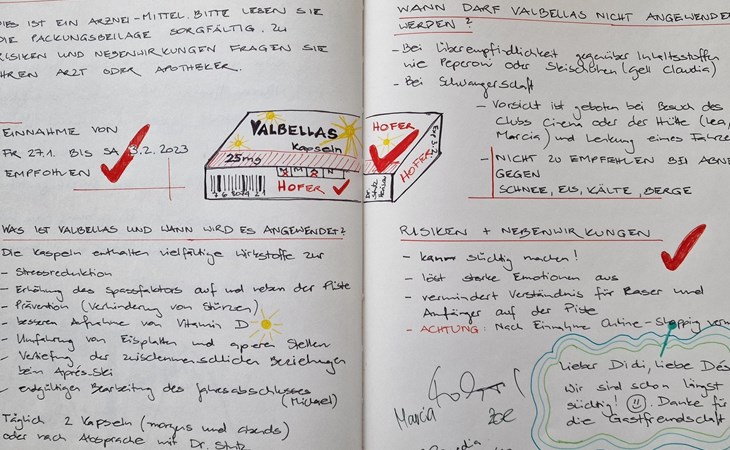 DIES IST EIN ARZNEI-MITTEL. BITTE LESEN SIE
DIE PACKUNGSBEILAGE SORGFÄLTIG. ZU
RISIKEN UND NEBENWIRKUNGEN FRAGEN SIE
IHREN ARZT ODER APOTHEKER.
EINNAHME VON
FR 27.1. BIS SA 3.2. 2023
EMPFOHLEN
VALBELLAS
Kapseln
25mg
HOFER
HOFER
HOFER
WAS IST VALBELLAS UND WANN WIRD ES ANGEWENDET?
Die Kaspeln enthalten vielfältige Wirkstoffe zur
- Stressreduktion
- Erhöhung des Spassfaktors auf und neben der Piste
- Prävention (Verhinderung von Stürzen)
- besseren Aufnahme von Vitamin D
- Umfahrung von Eisplatten und aperen Stellen
- Vertiefung der zwischenmenschlichen Beziehungen
beim Après-Ski
- endgültigen Bearbeitung des Jahresabschlusses
(Michael)
Täglich 2 Kapseln (morgens und abends)
oder nach Absprache mit Dr. Stutz
WANN DARF VALBELLAS NICHT ANGEWENDET
WERDEN?
- Bei Überempfindlichkeit gegenüber Inhaltsstoffen
wie Peperoni oder Skischuhen (gell Claudia)
- Bei Schwangerschaft
- Vorsicht ist geboten bei Besuch des
Clubs Cinema oder der Hütte (Lea,
Marcia) und Lenkung eines
- NICHT ZU EMPFEHLEN BEI
GEGEN
SCHNEE, EIS, KÄLTE, BERGE
RISIKEN + NEBENWIRKUNGEN
- kann süchtig machen!
- löst starke Emotionen aus
- vermindert Verständnis für Raser und
Anfänger auf der Piste
- ACHTUNG: Nach Einnahme Online-Shopping
Marcia
Lieber Didi, liebe Dés
Wir sind schon längst
süchtig! Danke für
die Gastfreundschaft